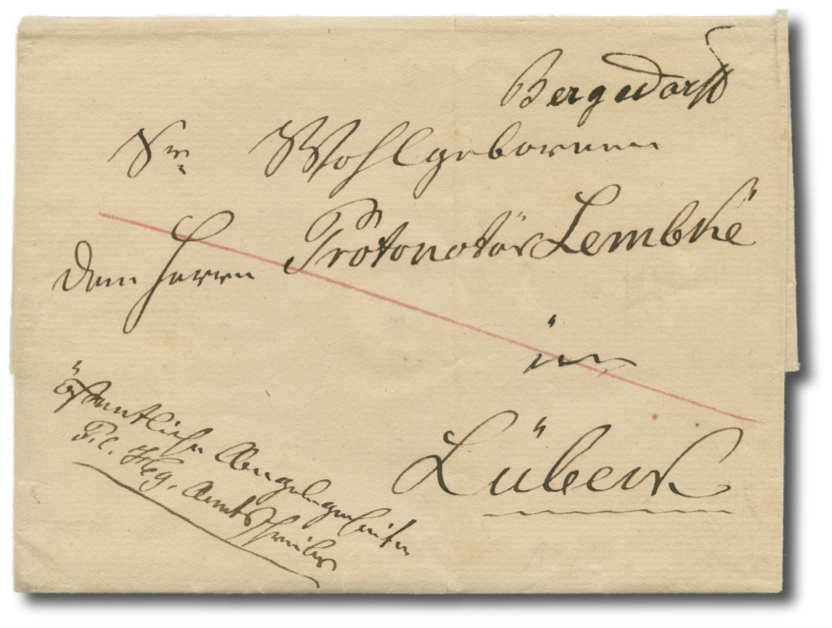 Bergedorff
Sr. Wohlgebornen
dem Herrn Protonotär Lembke
in
Lübeck
öffentliche Angelegenheiten
Amtsschreiber